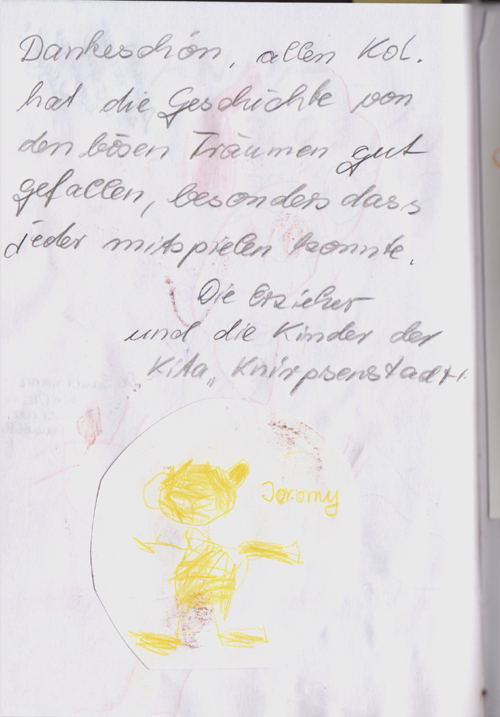 Dankeschön, allen Kol.
hat die Geschichte von
den bösen Träumen gut
gefallen, besonders dass
jeder mitspielen konnte.
Die Erzieher
und die Kinder der
Kita „Knirpsenstadt“
Joromy